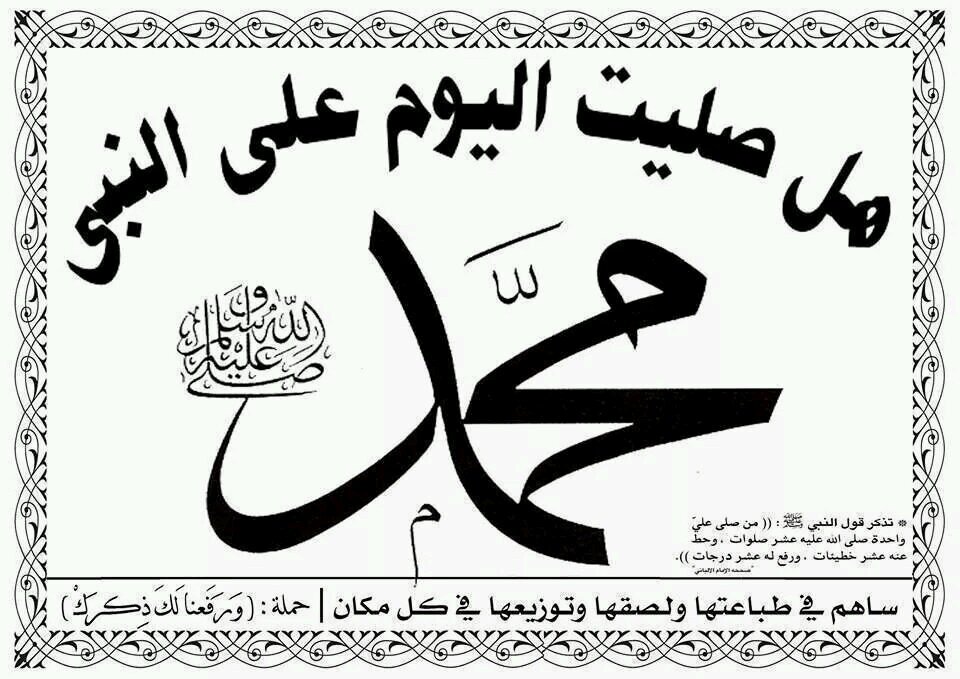 هل صليت اليوم على النبي
محمد
صلى الله عليه وسلم
* تذكر قول النبي ﷺ : (( من صلى عليّ
واحدة صلى الله عليه عشر صلوات ، وحط
عنه عشر خطيئات ، ورفع له عشر درجات )).
"صححه الإمام الألباني"
ساهم في طباعتها ولصقها وتوزيعها في كل مكان | حملة : (وَرَفَعْنَا لَكَ ذِكْرَكْ)